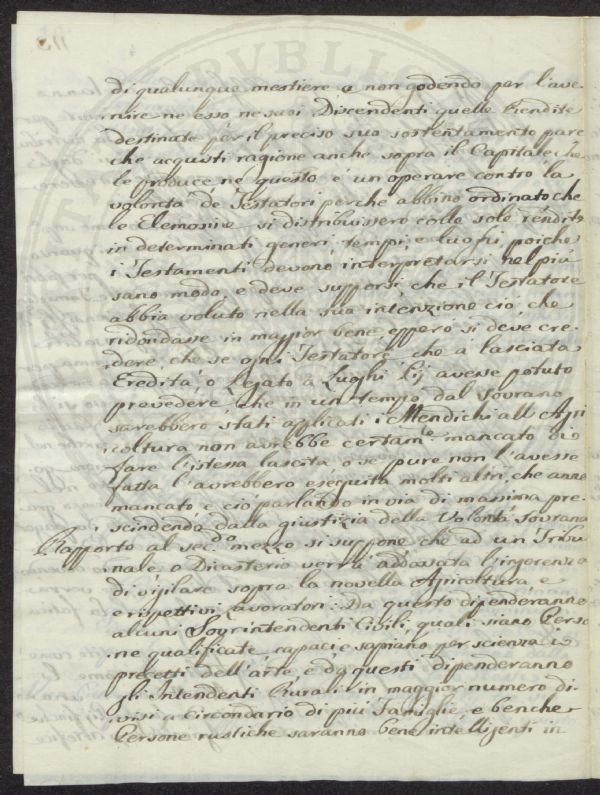 di qualunque mestiere e non godendo per l'ave-
nire ne esso ne suoi Discendenti quelle Rendite
destinate per il preciso suo sostentamento pare
che acquisti ragione anche sopra il Capitale che
le produce, ne questo è un operare contro la
volontà de Testatori perche abbino ordinato che
le Elemosine si distribuissero colle sole rendite
in determinati generi tempi e luoghi, poiche
i Testamenti devono interpretarsi nel più
sano modo, e deve supporsi che il Testatore
abbia voluto nella sua intenzione ciò, che
ridondasse in maggior bene epperò si deve cre-
dere, che se ogni Testatore che à lasciata
Eredità, o Legato à Luoghi Pij avesse potuto
provedere, che in un tempo dal Sovrano
sarebbero stati applicati i Mendichi all'Agri
coltura non avrebbe certam.te mancato di
fare l'istessa lascita, o se pure non l'avesse
fatta l'avrebbero eseguita molti altri, che anno
mancato, e ciò parlando in via di massima pre-
scindendo dalla giustizia della Volontà Sovrana
Rapporto al sec.do mezzo si suppone che ad un Tribu
nale, o Dicasterio verrà addossata l'ingerenza
di vigilare sopra la novella Agricoltura e
e rispettivi Lavoratori: Da questo dipenderanno
alcuni Sovrintendenti Civili, quali siano Perso
ne qualificate, capaci e sapiano per scienza i
precetti dell'arte, e da questi dipenderanno
gli Intendenti Rurali in maggior numero di-
visi a Circondario di più Famiglie, e benche
Persone rustiche saranno bene intelligenti in